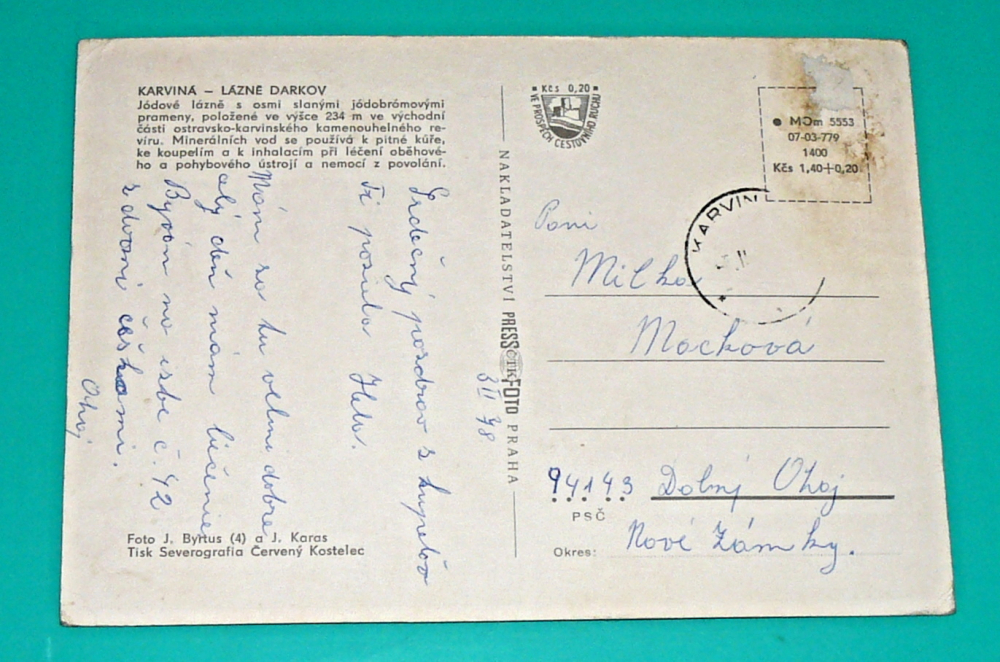 KARVINÁ – LÁZNE DARKOV
Jódové lázně s osmi slanými jódobrómovými
prameny, položené ve výšce 234 m ve východní
části ostravsko-karvinského kamenouhelného re-
víru. Minerálních vod se používá k pitné kúře,
ke koupelím a k inhalacím při léčení oběhové-
ho a pohybového ústrojí a nemocí z povolání.
Srdečný pozdrav z kupelov
Ti posiela Hela.
Mám sa tu velmi dobre
celý deň mám liečenie
Bývam na izbe č. 42
z dvomi češkami.
Ahoj
Foto J. Byrtus (4) a J. Karas
Tisk Severografia Červený Kostelec
NAKLADATELSTVÍ PRESSFOTO PRAHA
ČTK
3 II 78
Kčs 0,20
VE PROSPĚCH CESTOVNÍHO RUCHU
MOm 5553
07-03-779
1400
Kčs 1,40+0,20
KARVIN
Pani
Milka
Macková
94143 Dolný Ohaj
PSČ
Okres: Nové Zámky.